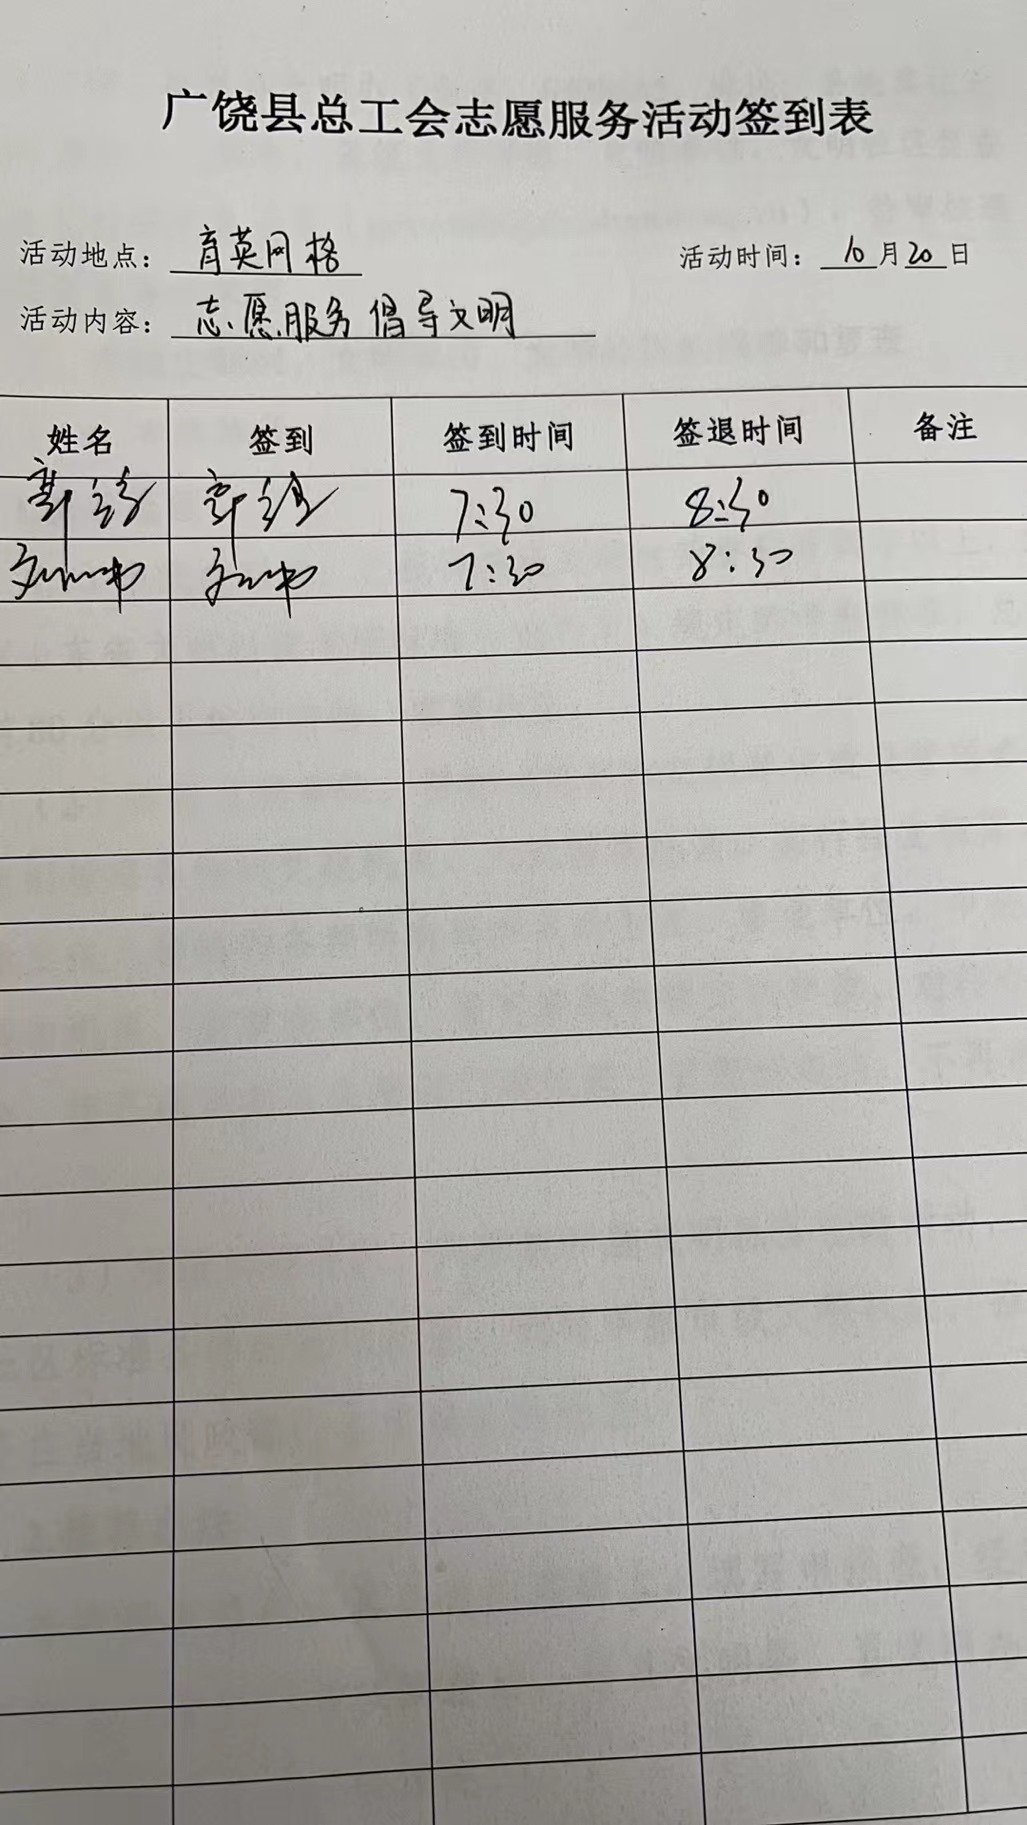 广饶县总工会志愿服务活动签到表
活动地点：育英网格 活动时间：10月20日
活动内容：志愿服务 倡导文明
姓名 签到 签到时间 签退时间 备注
7:30 8:30
7:30 8:30